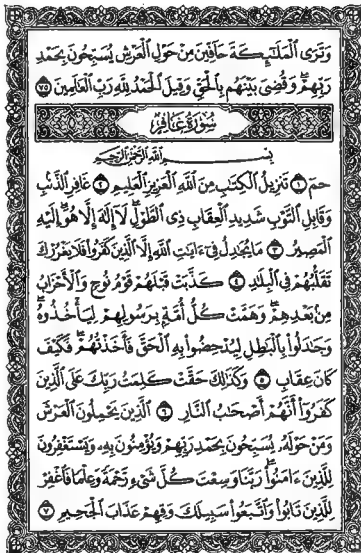 وَتَرَى ٱلْمَلَٰٓئِكَةَ حَآفِّينَ مِنْ حَوْلِ ٱلْعَرْشِ يُسَبِّحُونَ بِحَمْدِ
رَبِّهِمْ ۖ وَقُضِىَ بَيْنَهُم بِٱلْحَقِّ وَقِيلَ ٱلْحَمْدُ لِلَّهِ رَبِّ ٱلْعَٰلَمِينَ ٧٥
سُورَةُ غَافِر
بِسْمِ ٱللَّهِ ٱلرَّحْمَٰنِ ٱلرَّحِيمِ
حمٓ ١ تَنزِيلُ ٱلْكِتَٰبِ مِنَ ٱللَّهِ ٱلْعَزِيزِ ٱلْعَلِيمِ ٢ غَافِرِ ٱلذَّنۢبِ
وَقَابِلِ ٱلتَّوْبِ شَدِيدِ ٱلْعِقَابِ ذِى ٱلطَّوْلِ ۖ لَآ إِلَٰهَ إِلَّا هُوَ ۖ إِلَيْهِ
ٱلْمَصِيرُ ٣ مَا يُجَٰدِلُ فِىٓ ءَايَٰتِ ٱللَّهِ إِلَّا ٱلَّذِينَ كَفَرُوا۟ فَلَا يَغْرُرْكَ
تَقَلُّبُهُمْ فِى ٱلْبِلَٰدِ ٤ كَذَّبَتْ قَبْلَهُمْ قَوْمُ نُوحٍ وَٱلْأَحْزَابُ
مِنۢ بَعْدِهِمْ ۖ وَهَمَّتْ كُلُّ أُمَّةٍۭ بِرَسُولِهِمْ لِيَأْخُذُوهُ ۖ
وَجَٰدَلُوا۟ بِٱلْبَٰطِلِ لِيُدْحِضُوا۟ بِهِ ٱلْحَقَّ فَأَخَذْتُهُمْ ۖ فَكَيْفَ
كَانَ عِقَابِ ٥ وَكَذَٰلِكَ حَقَّتْ كَلِمَتُ رَبِّكَ عَلَى ٱلَّذِينَ
كَفَرُوٓا۟ أَنَّهُمْ أَصْحَٰبُ ٱلنَّارِ ٦ ٱلَّذِينَ يَحْمِلُونَ ٱلْعَرْشَ
وَمَنْ حَوْلَهُۥ يُسَبِّحُونَ بِحَمْدِ رَبِّهِمْ وَيُؤْمِنُونَ بِهِۦ وَيَسْتَغْفِرُونَ
لِلَّذِينَ ءَامَنُوا۟ رَبَّنَا وَسِعْتَ كُلَّ شَىْءٍ رَّحْمَةً وَعِلْمًا فَٱغْفِرْ
لِلَّذِينَ تَابُوا۟ وَٱتَّبَعُوا۟ سَبِيلَكَ وَقِهِمْ عَذَابَ ٱلْجَحِيمِ ٧